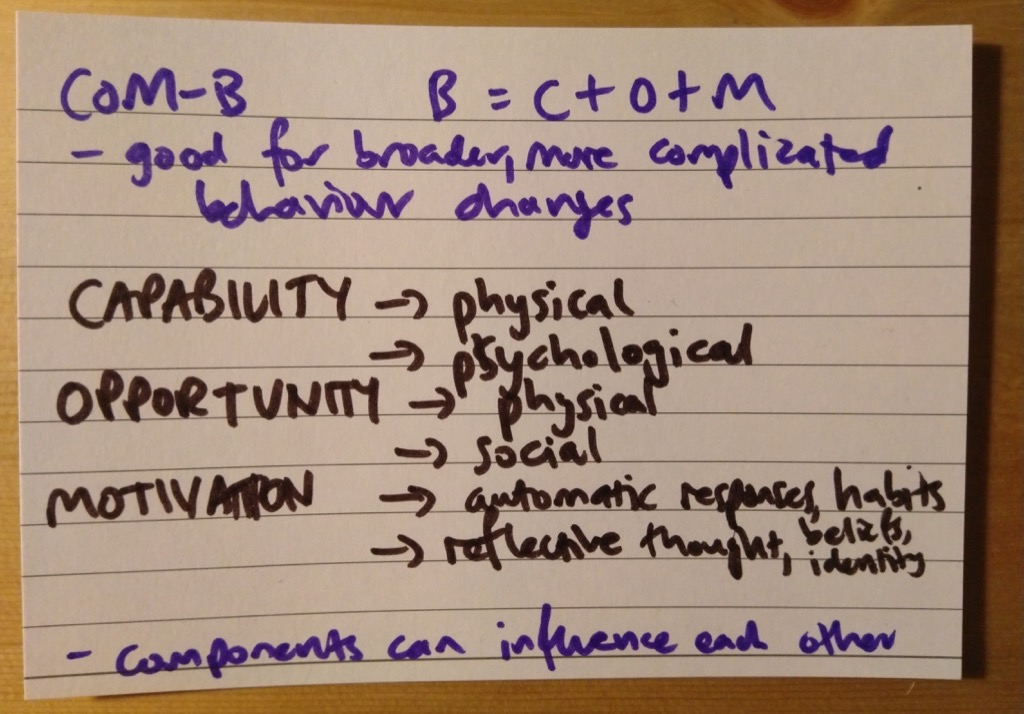 COM-B B = C + O + M
- good for broader, more complicated
behaviour changes
CAPABILITY → physical
→ psychological
OPPORTUNITY → physical
→ social
MOTIVATION → automatic responses, habits
→ reflective thought, beliefs,
identity
- components can influence each other